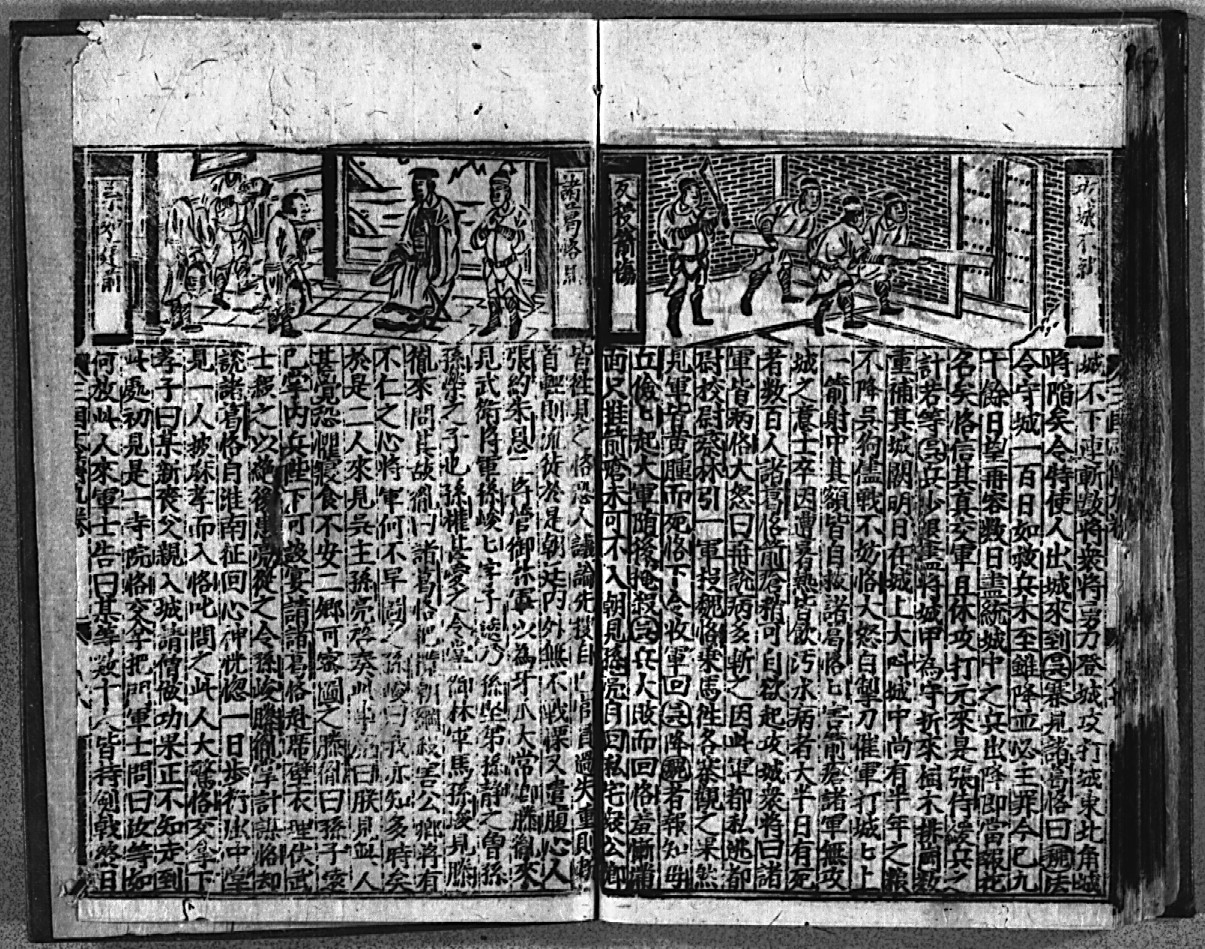 城不下連斬数將衆將奮力登城攻打城東北角城
將陷矣令特使人出城來到吳寨見諸葛恪曰魏法
令守城一百日如救兵未至雖降而必主罪今已九
十餘日望再容数日盡統城中之兵出降即當報花
名矣恪信其真交軍且休攻打元來是張特緩兵之
計若等吳兵少退盡將城中為守折來植木排當数
重補其城闕明日在城上大叫城中尚有半年之粮
不降吳狗儘戰不妨恪大怒自掣刀催軍打城城上
一箭射中其額皆自救諸葛恪已害箭瘡諸軍無攻
城之意士卒因遭暑熱皆飲汚水病者大半日有死
者数百人諸葛恪前瘡稍可自欲起攻城衆將曰諸
軍皆病恪大怒曰再說病多斬之因此軍都私逃都
尉校尉蔡林引一軍投魏恪乘馬往各寨觀之果然
見軍皆黄腫而死恪下令收軍回吳降魏者報知毋
丘儉七起大軍随後掩殺吳兵大敗而回恪羞慚滿
面只推前瘡未可不入朝見孫亮自回私宅衆公卿
反被箭傷
諸葛恪
皆往見之恪恐人議論先 過失重則斬
首輕則流徒於是朝廷内外無不戰慄又遣腹心人
張約朱恩二 管御林軍以為牙爪太常卿滕胤來
見武衛將軍孫峻七字子遠乃孫堅弟孫靜之曾孫
孫恭之子也孫權甚愛之令掌御林軍馬孫峻見滕
胤來問其故胤曰諸葛恪把 朝綱殺害公卿將有
不仁之心將軍何不早圖之孫峻曰我亦知多時矣
於是二人來見吳主孫亮啓奏此事亮曰朕見此人
甚覺恐懼寢食不安二卿可密圖之滕胤曰孫子壞
已掌内兵陛下可設宴請諸葛恪赴席壁衣埋伏武
士殺之以絕後患亮從之令孫峻滕胤掌計
說諸葛恪自淮南征回心神恍惚一日步行出中堂
見一人披麻孝而入恪叱問之此人大驚恪交拿下
孝子曰某新喪父親入城請僧做功果正不知走到
此處初見是一寺院恪交拿把門軍士問曰汝等如
何放此人來軍士告曰某等数十人皆持劍戟終日